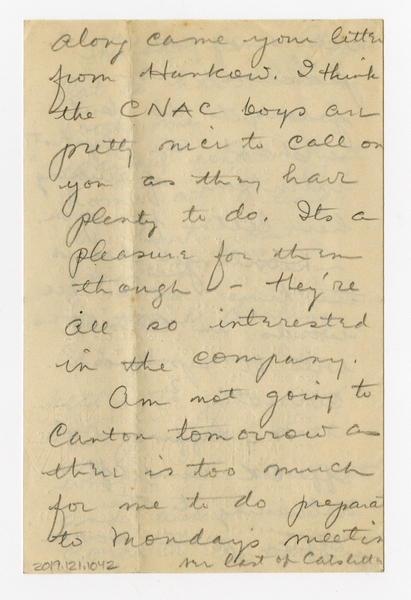 along came your letter
from Hankow. I think
the CNAC boys are
pretty nice to call on
you as they have
plenty to do. Its a
pleasure for them
though – they're
all so interested
in the company.
Am not going to
Canton tomorrow as
there is too much
for me to do preparat
to Mondays meetin
2017.121.1042
last of